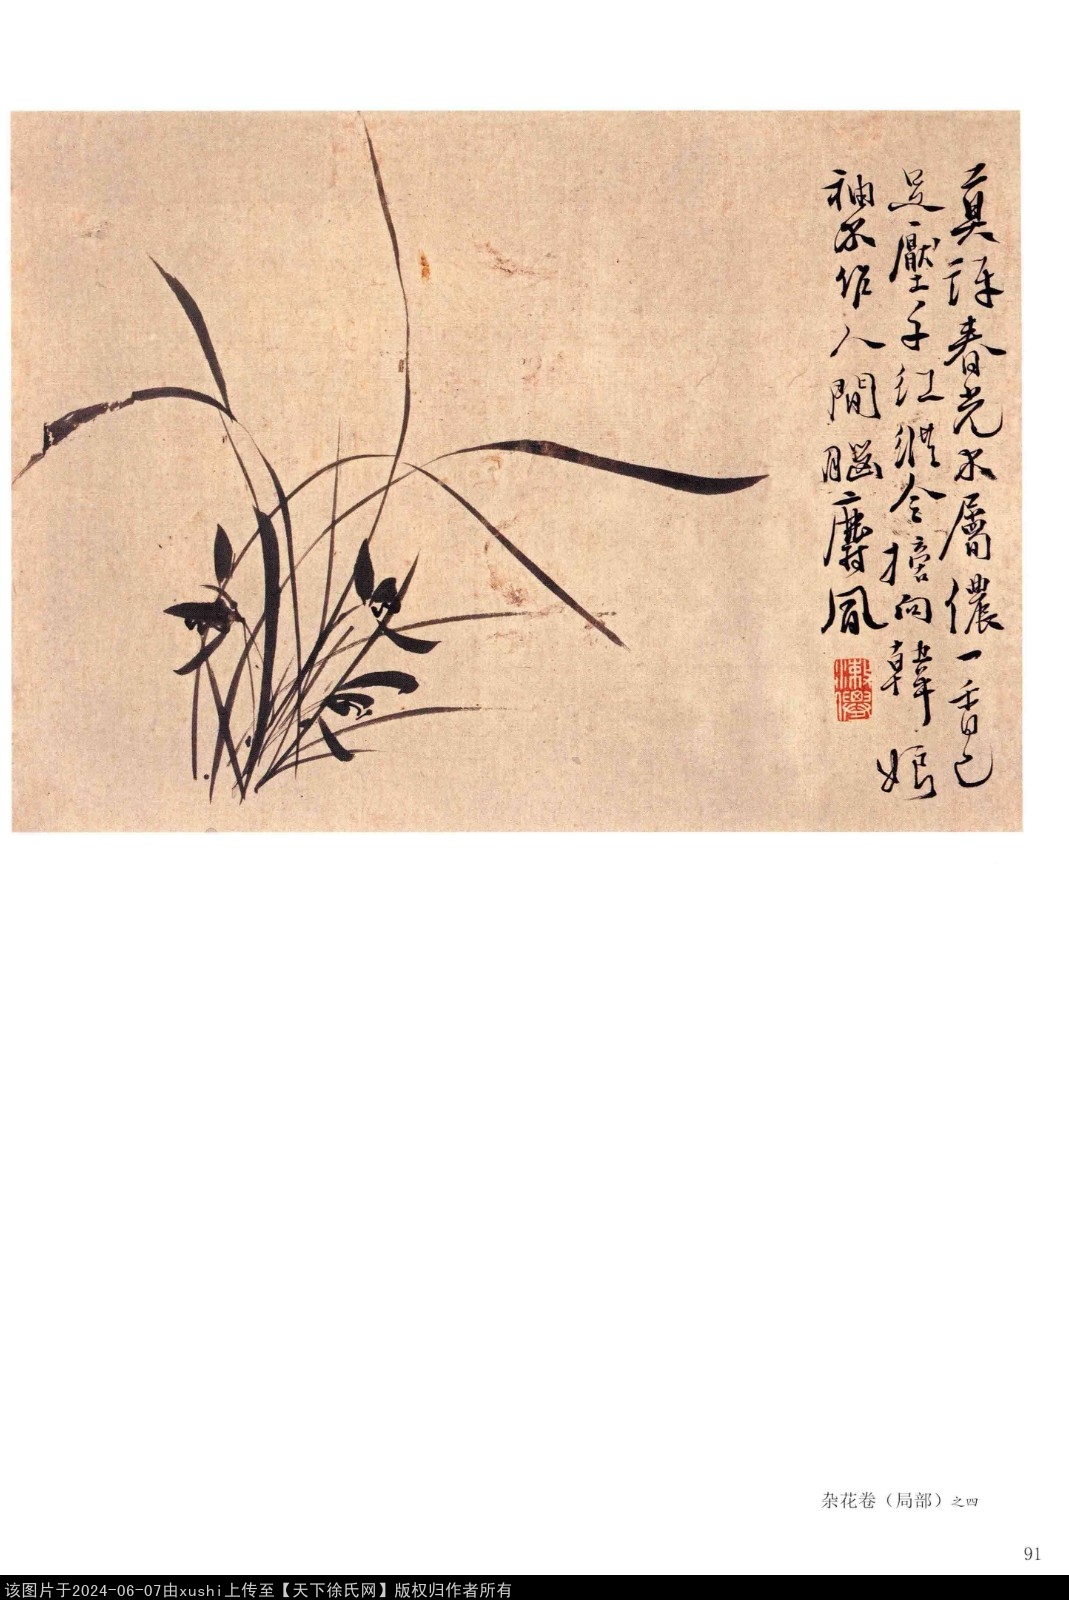 莫訝春光不屬儂一香已
足壓千紅縱令摘向韓娘
袖不作人間腦麝風
漱僊
杂花卷（局部）之四
91
该图片于2024-06-07由xushi上传至【天下徐氏网】版权归作者所有